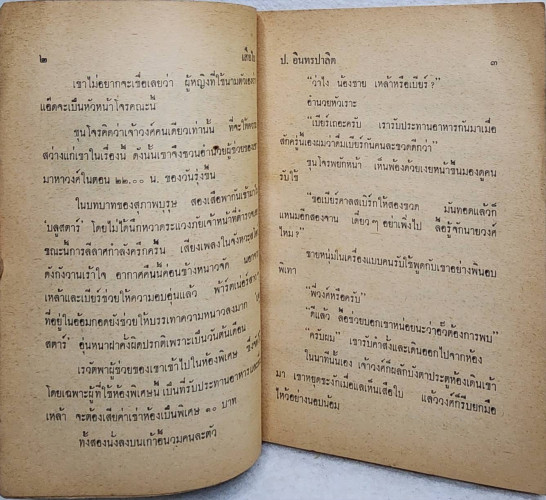 ๒
เสือใบ
เขาไม่อยากจะเชื่อเลยว่า ผู้หญิงที่ใช้นามตัวเอง
แอ๊ดจะเป็นหัวหน้าโจรคณะนี้
ขุนโจรคิดว่าเจ้าวงศ์คนเดียวเท่านั้น ที่จะให้ความ
สว่างแก่เขาในเรื่องนี้ ดังนั้นเขาจึงชวนอำนวยผู้ช่วยของเขา
มาหาวงศ์ในตอน ๒๒.๐๐ น. ของวันรุ่งขึ้น
ในบทบาทของสุภาพบุรุษ สองเสือพากันเข้ามาใน
'บลูสตาร์' โดยไม่ได้นึกหวาดระแวงภัยเจ้าหน้าที่ตำรวจเลย
ขณะนี้การลีลาศกำลังครึกครื้น เสียงเพลงในจังหวะ
ดังกังวานเร้าใจ อากาศคืนนี้ค่อนข้างหนาวจัด นอกจาก
เหล้าและเบียร์ช่วยให้ความอบอุ่นแล้ว พาร์ตเน่อร์สาว
ที่อยู่ในอ้อมกอดยังช่วยให้บรรเทาความหนาวลงมาก
สตาร์' อุ่นหนาฝาคั่งผิดปรกติเพราะเป็นวันต้นเดือน
เรวัตพาผู้ช่วยของเขาเข้าไปในห้องพิเศษ ซึ่งจัดไว้
โดยเฉพาะผู้ที่ใช้ห้องพิเศษนี้ เป็นที่รับประทานอาหารและ
เหล้า จะต้องเสียค่าเช่าห้องเป็นพิเศษ ๓๐ บาท
ทั้งสองนั่งลงบนเก้าอี้นวมคนละตัว
ป. อินทรปาลิต
๓
"ว่าไง น้องชาย เหล้าหรือเบียร์?"
อำนวยหัวเราะ
"เบียร์เถอะครับ เรารับประทานอาหารกันมาเมื่อ
สักครู่นี้เองผมว่าดื่มเบียร์กันคนละขวดดีกว่า"
ขุนโจรพยักหน้า เห็นพ้องด้วยเงยหน้าขึ้นมองดูคน
รับใช้
"ขอเบียร์คาลสเบิร์กให้สองขวด มันทอดแล้วก็
แหนมอีกสองจาน เดี๋ยวๆ อย่าเพิ่งไป ลื้อรู้จักนายวงศ์
ไหม?"
ชายหนุ่มในเครื่องแบบคนรับใช้พูดกับเขาอย่างพินอบ
พิเทา
"พี่วงศ์หรือครับ"
"ดีแล้ว ลื้อช่วยบอกเขาหน่อยนะว่าอั๊วต้องการพบ"
"ครับผม" เขารับคำสั่งและเดินออกไปจากห้อง
ในนาทีนั้นเอง เจ้าวงศ์ก็ผลักบังตาประตูห้องเดินเข้า
มา เขาหยุดชะงักเมื่อแลเห็นเสือใบ แล้ววงศ์ก็รีบยกมือ
ไหว้อย่างนอบน้อม